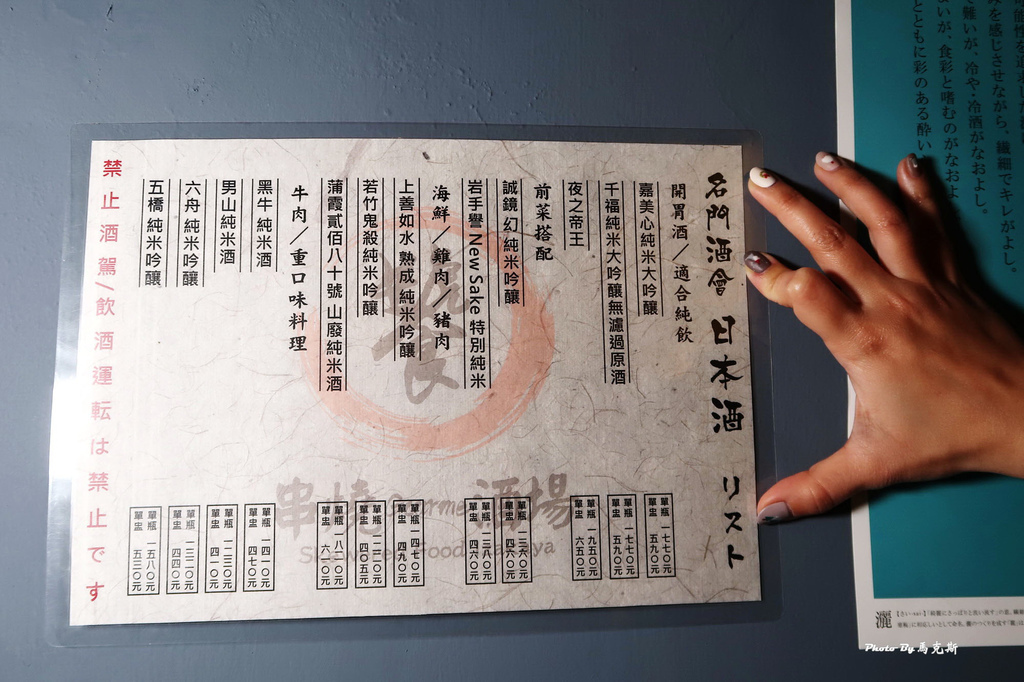 可能性を追求した
みを感じさせながら、繊細でキレがよし。
で難いが、冷や・冷酒がなおよし。
よいが、食彩と嗜むのがなおよ
とともに彩のある酔い
名門酒會 日本酒 リスト
開胃酒／適合純飲
嘉美心純米大吟釀
單瓶 一七七〇元
單盅 五九〇元
千福純米大吟釀無濾過原酒
單瓶 一七七〇元
單盅 五九〇元
夜之帝王
單瓶 一九五〇元
單盅 六五〇元
前菜搭配
誠鏡 幻 純米吟釀
單瓶 一三八〇元
單盅 四六〇元
岩手譽 New Sake 特別純米
單瓶 一三八〇元
單盅 四六〇元
海鮮／雞肉／豬肉
上善如水 熟成 純米吟釀
單瓶 一四七〇元
單盅 四九〇元
若竹鬼殺純米吟釀
單瓶 一二二〇元
單盅 四〇五元
蒲霞貳佰八十號 山廢純米酒
單瓶 一八二〇元
單盅 六一〇元
牛肉／重口味料理
黑牛 純米酒
單瓶 一四一〇元
單盅 四七〇元
男山純米酒
單瓶 一二三〇元
單盅 四一〇元
六舟 純米吟釀
單瓶 一三二〇元
單盅 四四〇元
五橋 純米吟釀
單瓶 一五八〇元
單盅 五三〇元
禁止酒駕/飲酒運転は禁止です
串燒
酒場
灑
Photo By 馬克斯